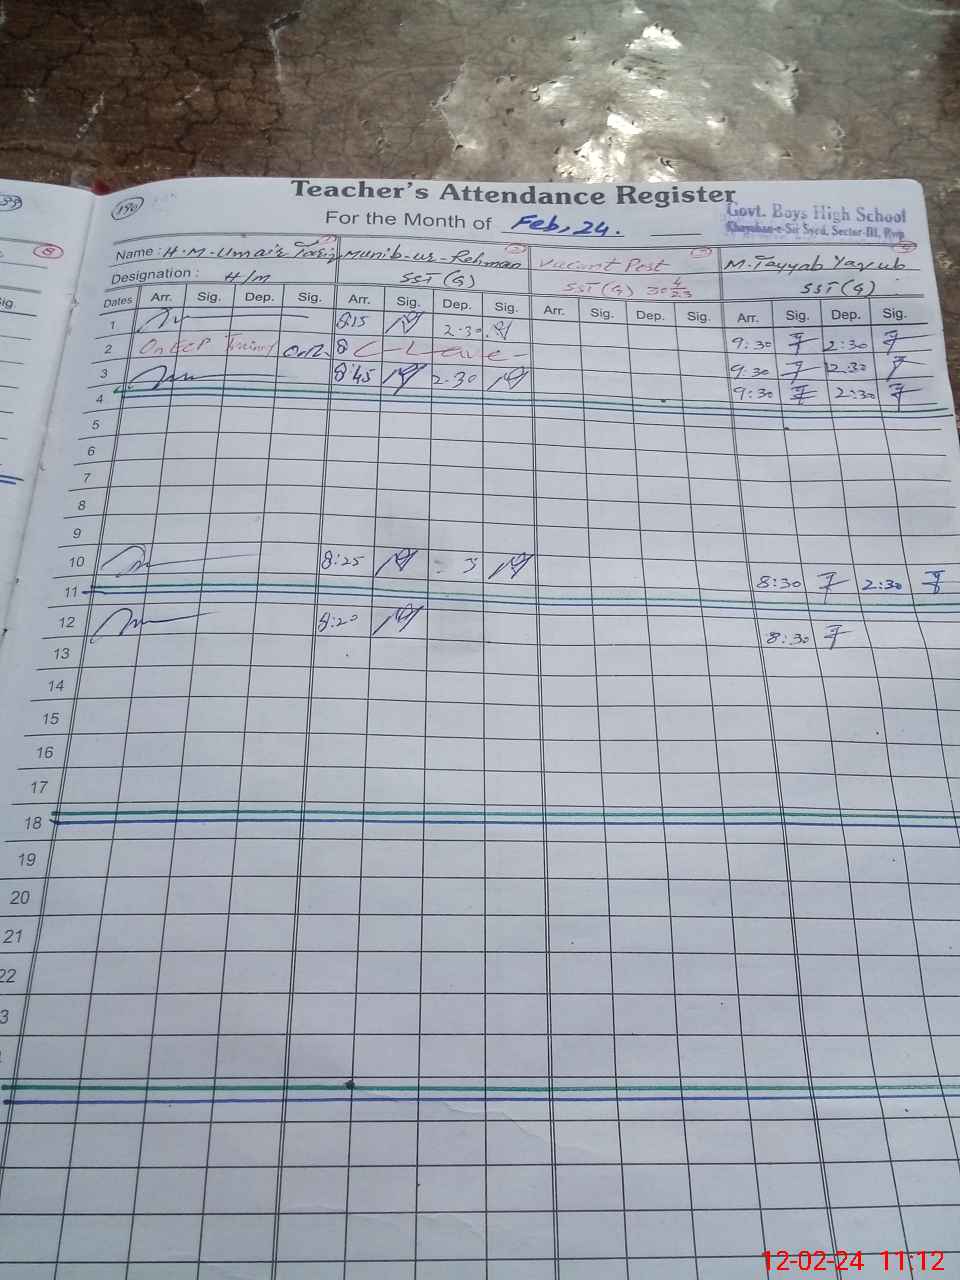 Teacher's Attendance Register
190
For the Month of Feb, 24.
Govt. Boys High School
Khayaban-e-Sir Syed, Sector-III, Rwp
Name : H.M.Umair Tariq Munib-ur-Rehman Vacant Post M.Tayyab Yaqub
1 2 3 4
8
Designation : H/M SST (G) SST (G) SST (G)
Dates Arr. Sig. Dep. Sig. Arr. Sig. Dep. Sig. Arr. Sig. Dep. Sig. Arr. Sig. Dep. Sig.
1 8:15 2:30 9:30 2:30
2 On ECP Training C-Leave- 9:30 2:30
3 8:45 2:30 9:30 2:30
4
5
6
7
8
9
10 8:25 8:30 2:30
11
12 8:20 8:30
13
14
15
16
17
18
19
20
21
22
3
12-02-24 11:12